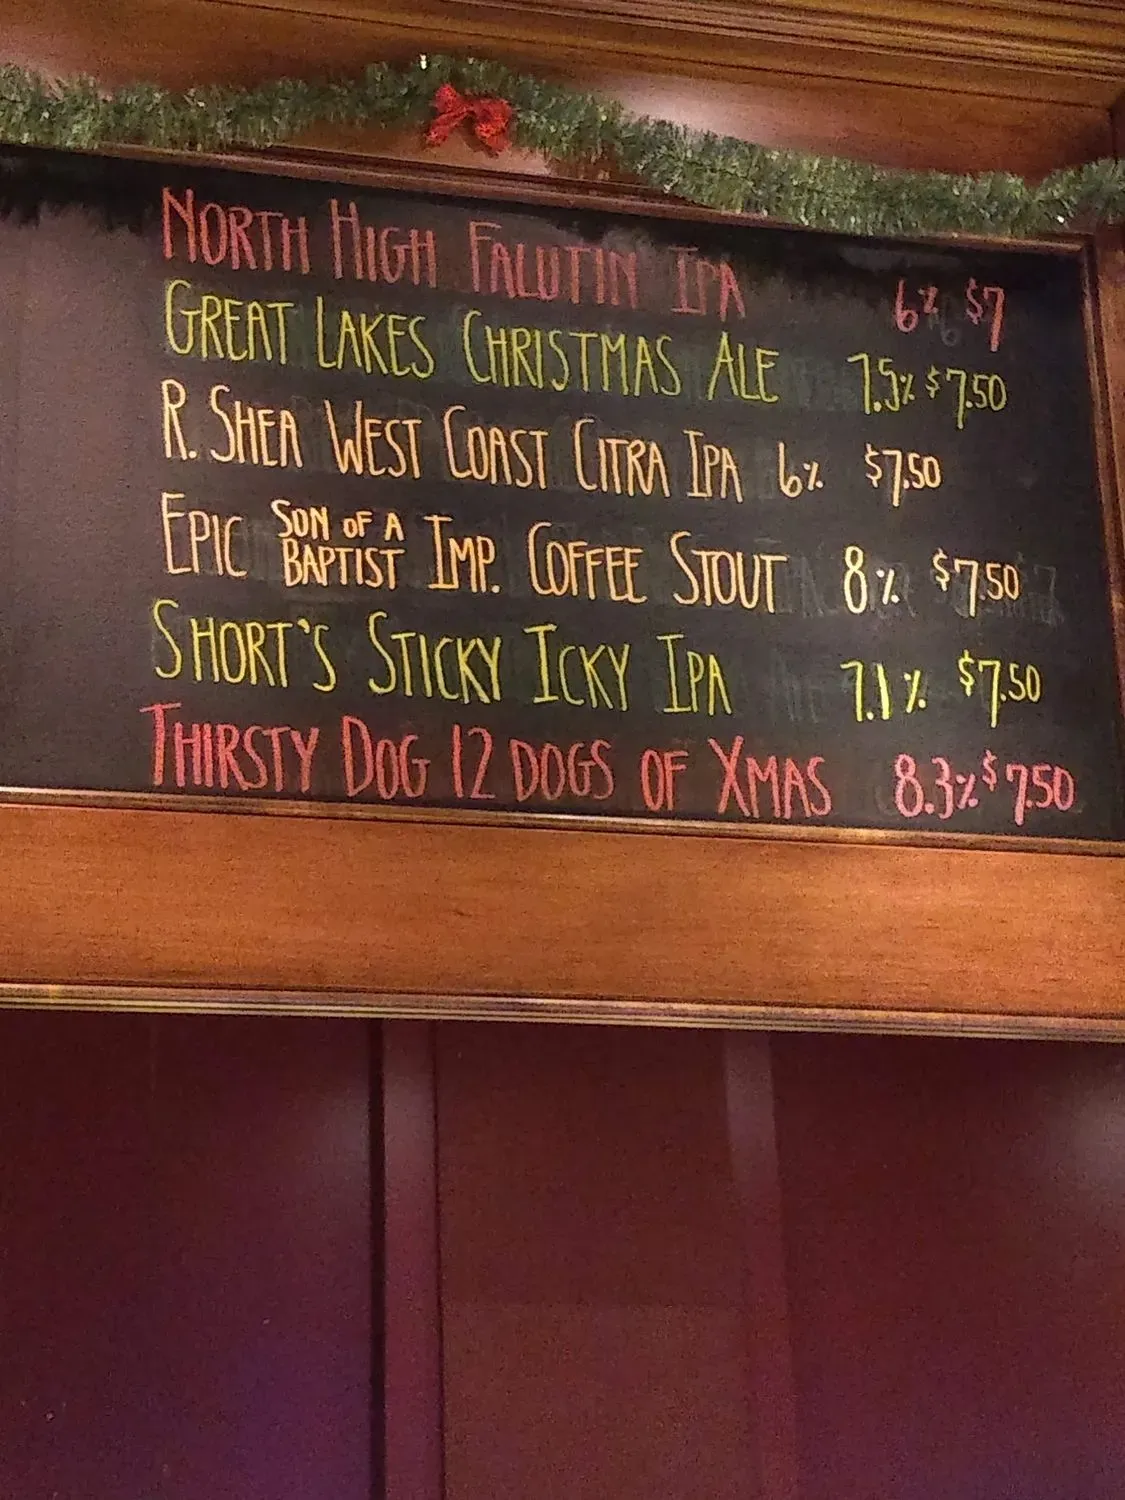 NORTH HIGH FALUTIN IPA 6% $7
GREAT LAKES CHRISTMAS ALE 7.5% $7.50
R. SHEA WEST COAST CITRA IPA 6% $7.50
EPIC SON OF A BAPTIST IMP. COFFEE STOUT 8% $7.50
SHORT'S STICKY ICKY IPA 7.1% $7.50
THIRSTY DOG 12 DOGS OF XMAS 8.3% $7.50